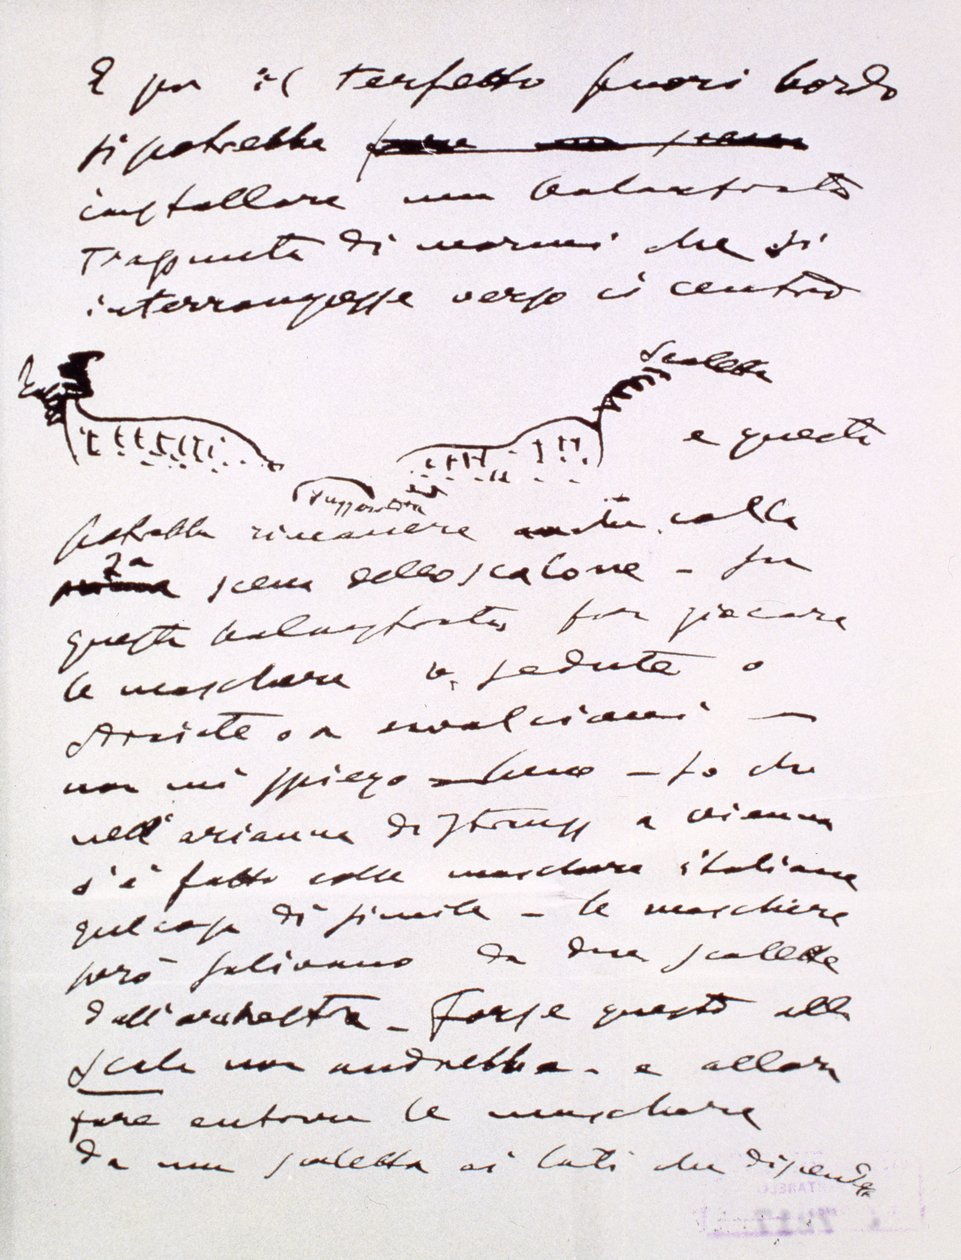 E per il terzetto fuori bordo
si potrebbe
installare un balaustrata
Trapunta di marmi che si
interrompesse verso il centro
Scaletta
e questa
Suggeritore
potrebbe rimanere anche colla
2a scena dello scalone – su
questa balaustrata, far giocare
le maschere o sedute o
sdraiate o a cavalcioni –
non mi spiego bene – so che
nell'arianna di Strauss a vienna
s'è fatto colle maschere italiane
qualcosa di simile – le maschere
però salivano da due scalette
dall'orchestra – Forse questo alla
Scala non andrebbe – e allora
fare entrare le maschere
da una scaletta ai lati che discende